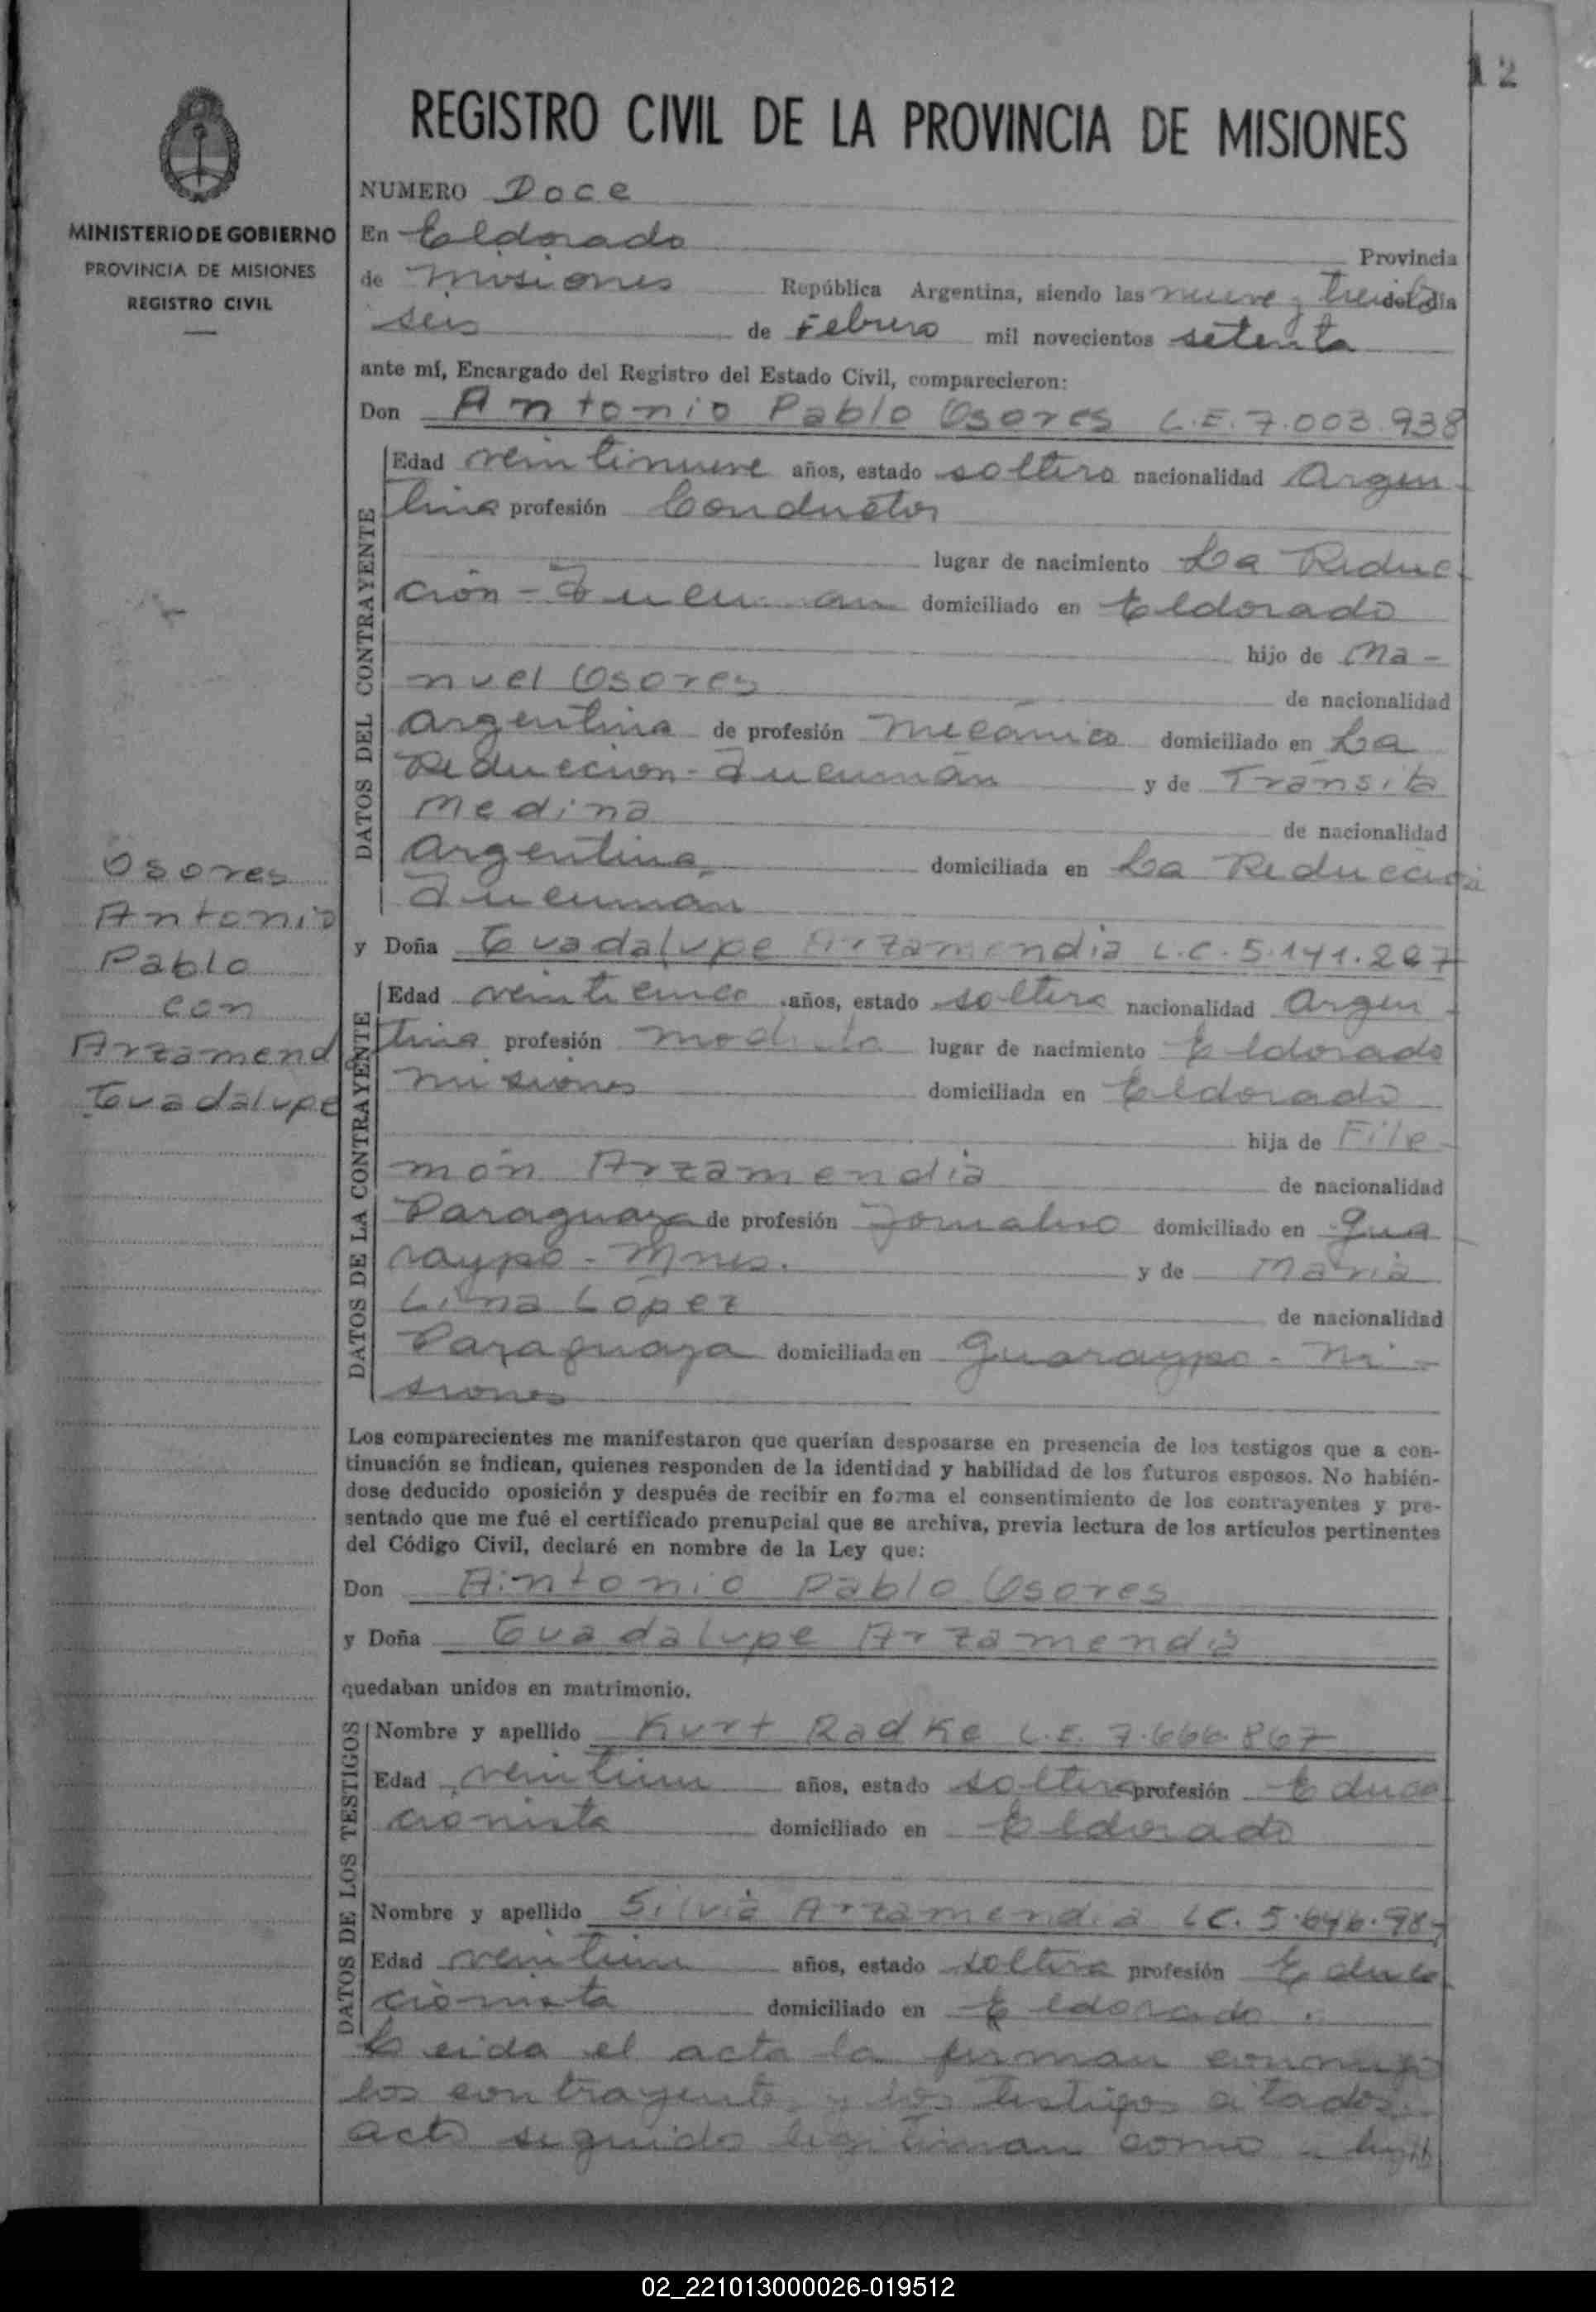 12
REGISTRO CIVIL DE LA PROVINCIA DE MISIONES
MINISTERIO DE GOBIERNO
PROVINCIA DE MISIONES
REGISTRO CIVIL
NUMERO Doce
En Eldorado Provincia
de Misiones República Argentina, siendo las nueve y del día
seis de Febrero mil novecientos setenta
ante mí, Encargado del Registro del Estado Civil, comparecieron:
Don Antonio Pablo Osores L.E. 7.003.938
DATOS DEL CONTRAYENTE
Edad veintinueve años, estado soltero nacionalidad Argen
tina profesión Conductor
lugar de nacimiento La Reduc
ción - Tucuman domiciliado en Eldorado
hijo de Ma-
nuel Osores de nacionalidad
argentina de profesión mecánico domiciliado en La
Reduccion - Tucumán y de Tránsita
Medina de nacionalidad
argentina domiciliada en La Reducción
Tucumán
Osores
Antonio
Pablo
con
Arzamend
Guadalupe
y Doña Guadalupe Arzamendia L.C. 5.141.227
DATOS DE LA CONTRAYENTE
Edad veinticinco años, estado soltera nacionalidad Argen
tina profesión modista lugar de nacimiento Eldorado
Misiones domiciliada en Eldorado
hija de File
món Arzamendia de nacionalidad
Paraguaya de profesión Jornalero domiciliado en Gua
raypo - Mnes. y de Maria
Lina Lopez de nacionalidad
Paraguaya domiciliada en Guaraypo - Mi-
siones
Los comparecientes me manifestaron que querían desposarse en presencia de los testigos que a con-
tinuación se indican, quienes responden de la identidad y habilidad de los futuros esposos. No habién-
dose deducido oposición y después de recibir en forma el consentimiento de los contrayentes y pre-
sentado que me fué el certificado prenupcial que se archiva, previa lectura de los artículos pertinentes
del Código Civil, declaré en nombre de la Ley que:
Don Antonio Pablo Osores
y Doña Guadalupe Arzamendia
quedaban unidos en matrimonio.
DATOS DE LOS TESTIGOS
Nombre y apellido Kurt Radke L.E. 7.666.867
Edad veintiun años, estado soltero profesión Educa
cionista domiciliado en Eldorado
Nombre y apellido Silvia Arzamendia LC. 5.646.987
Edad veintiun años, estado soltera profesión Educa
cionista domiciliado en Eldorado.
Leida el acta la firman conmigo
los contrayentes y los testigos citados.
acto seguido legitiman como
02_221013000026-019512